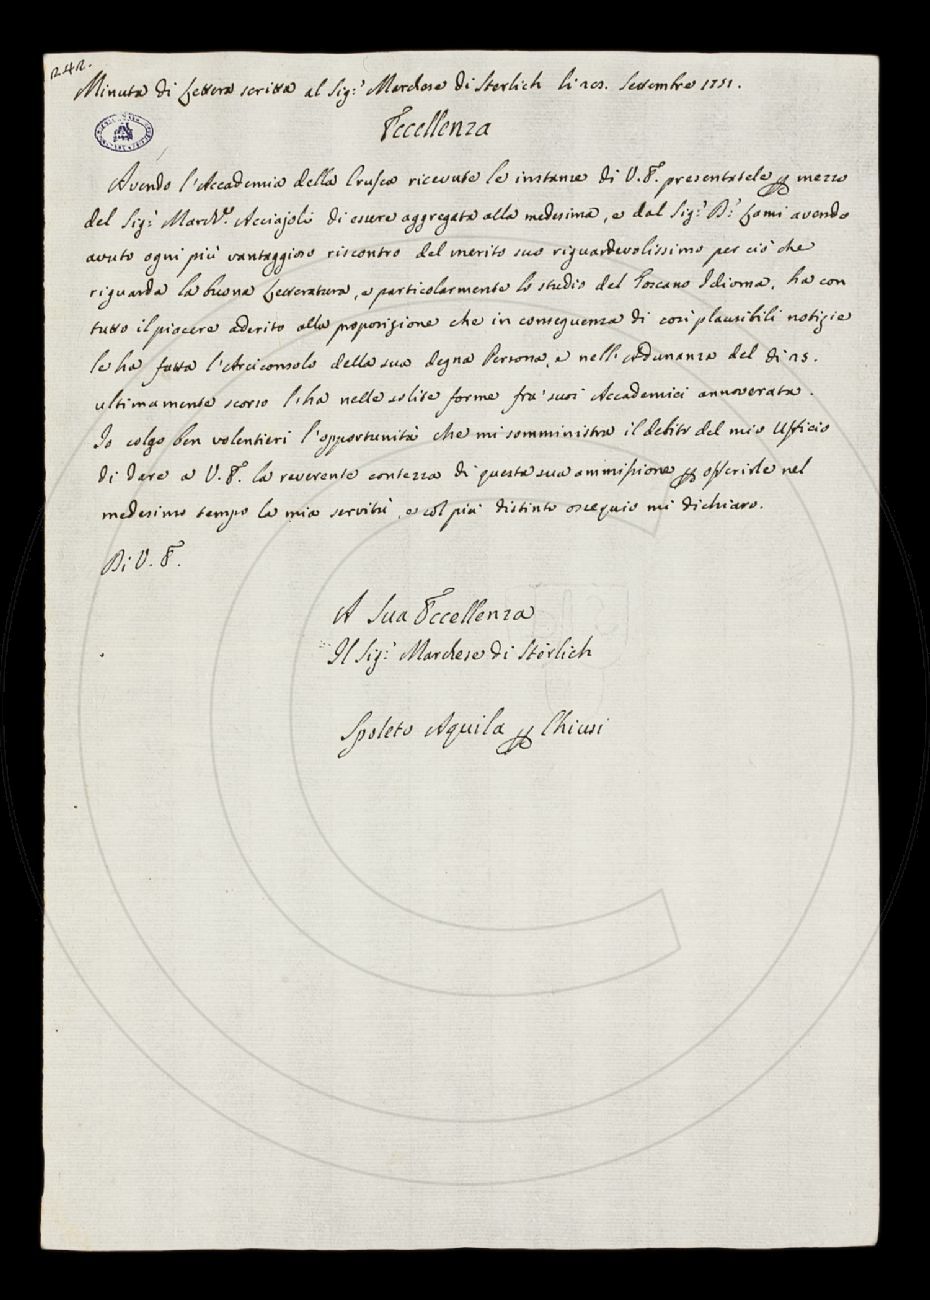 242.
Minuta di Lettera scritta al Sig:r Marchese di Sterlich li Settembre 1751.
Eccellenza
Avendo l'Accademia della Crusca ricevute le instanze di V. E. presentatele per mezzo
del Sig:r March:e Acciajoli di essere aggregata alla medesima, e dal Sig:r D:r Lami avendo
avuto ogni più vantaggioso riscontro del merito suo riguardevolissimo per ciò che
riguarda la buona Letteratura, e particolarmente lo studio del Toscano Idioma, ha con
tutto il piacere aderito alla proposizione che in conseguenza di così plausibili notizie
le ha fatta l'Arciconsolo della sua degna Persona, e nell'Adunanza del dì
ultimamente scorso l'ha nelle solite forme fra' suoi Accademici annoverata.
Io colgo ben volentieri l'opportunità che mi somministra il debito del mio Ufficio
di dare a V. E. la reverente contezza di questa sua ammissione per offerirle nel
medesimo tempo la mia servitù, e col più distinto ossequio mi dichiaro.
Di V. E.
A Sua Eccellenza
Il Sig:r Marchese di Sterlich
Spoleto Aquila per Chiusi